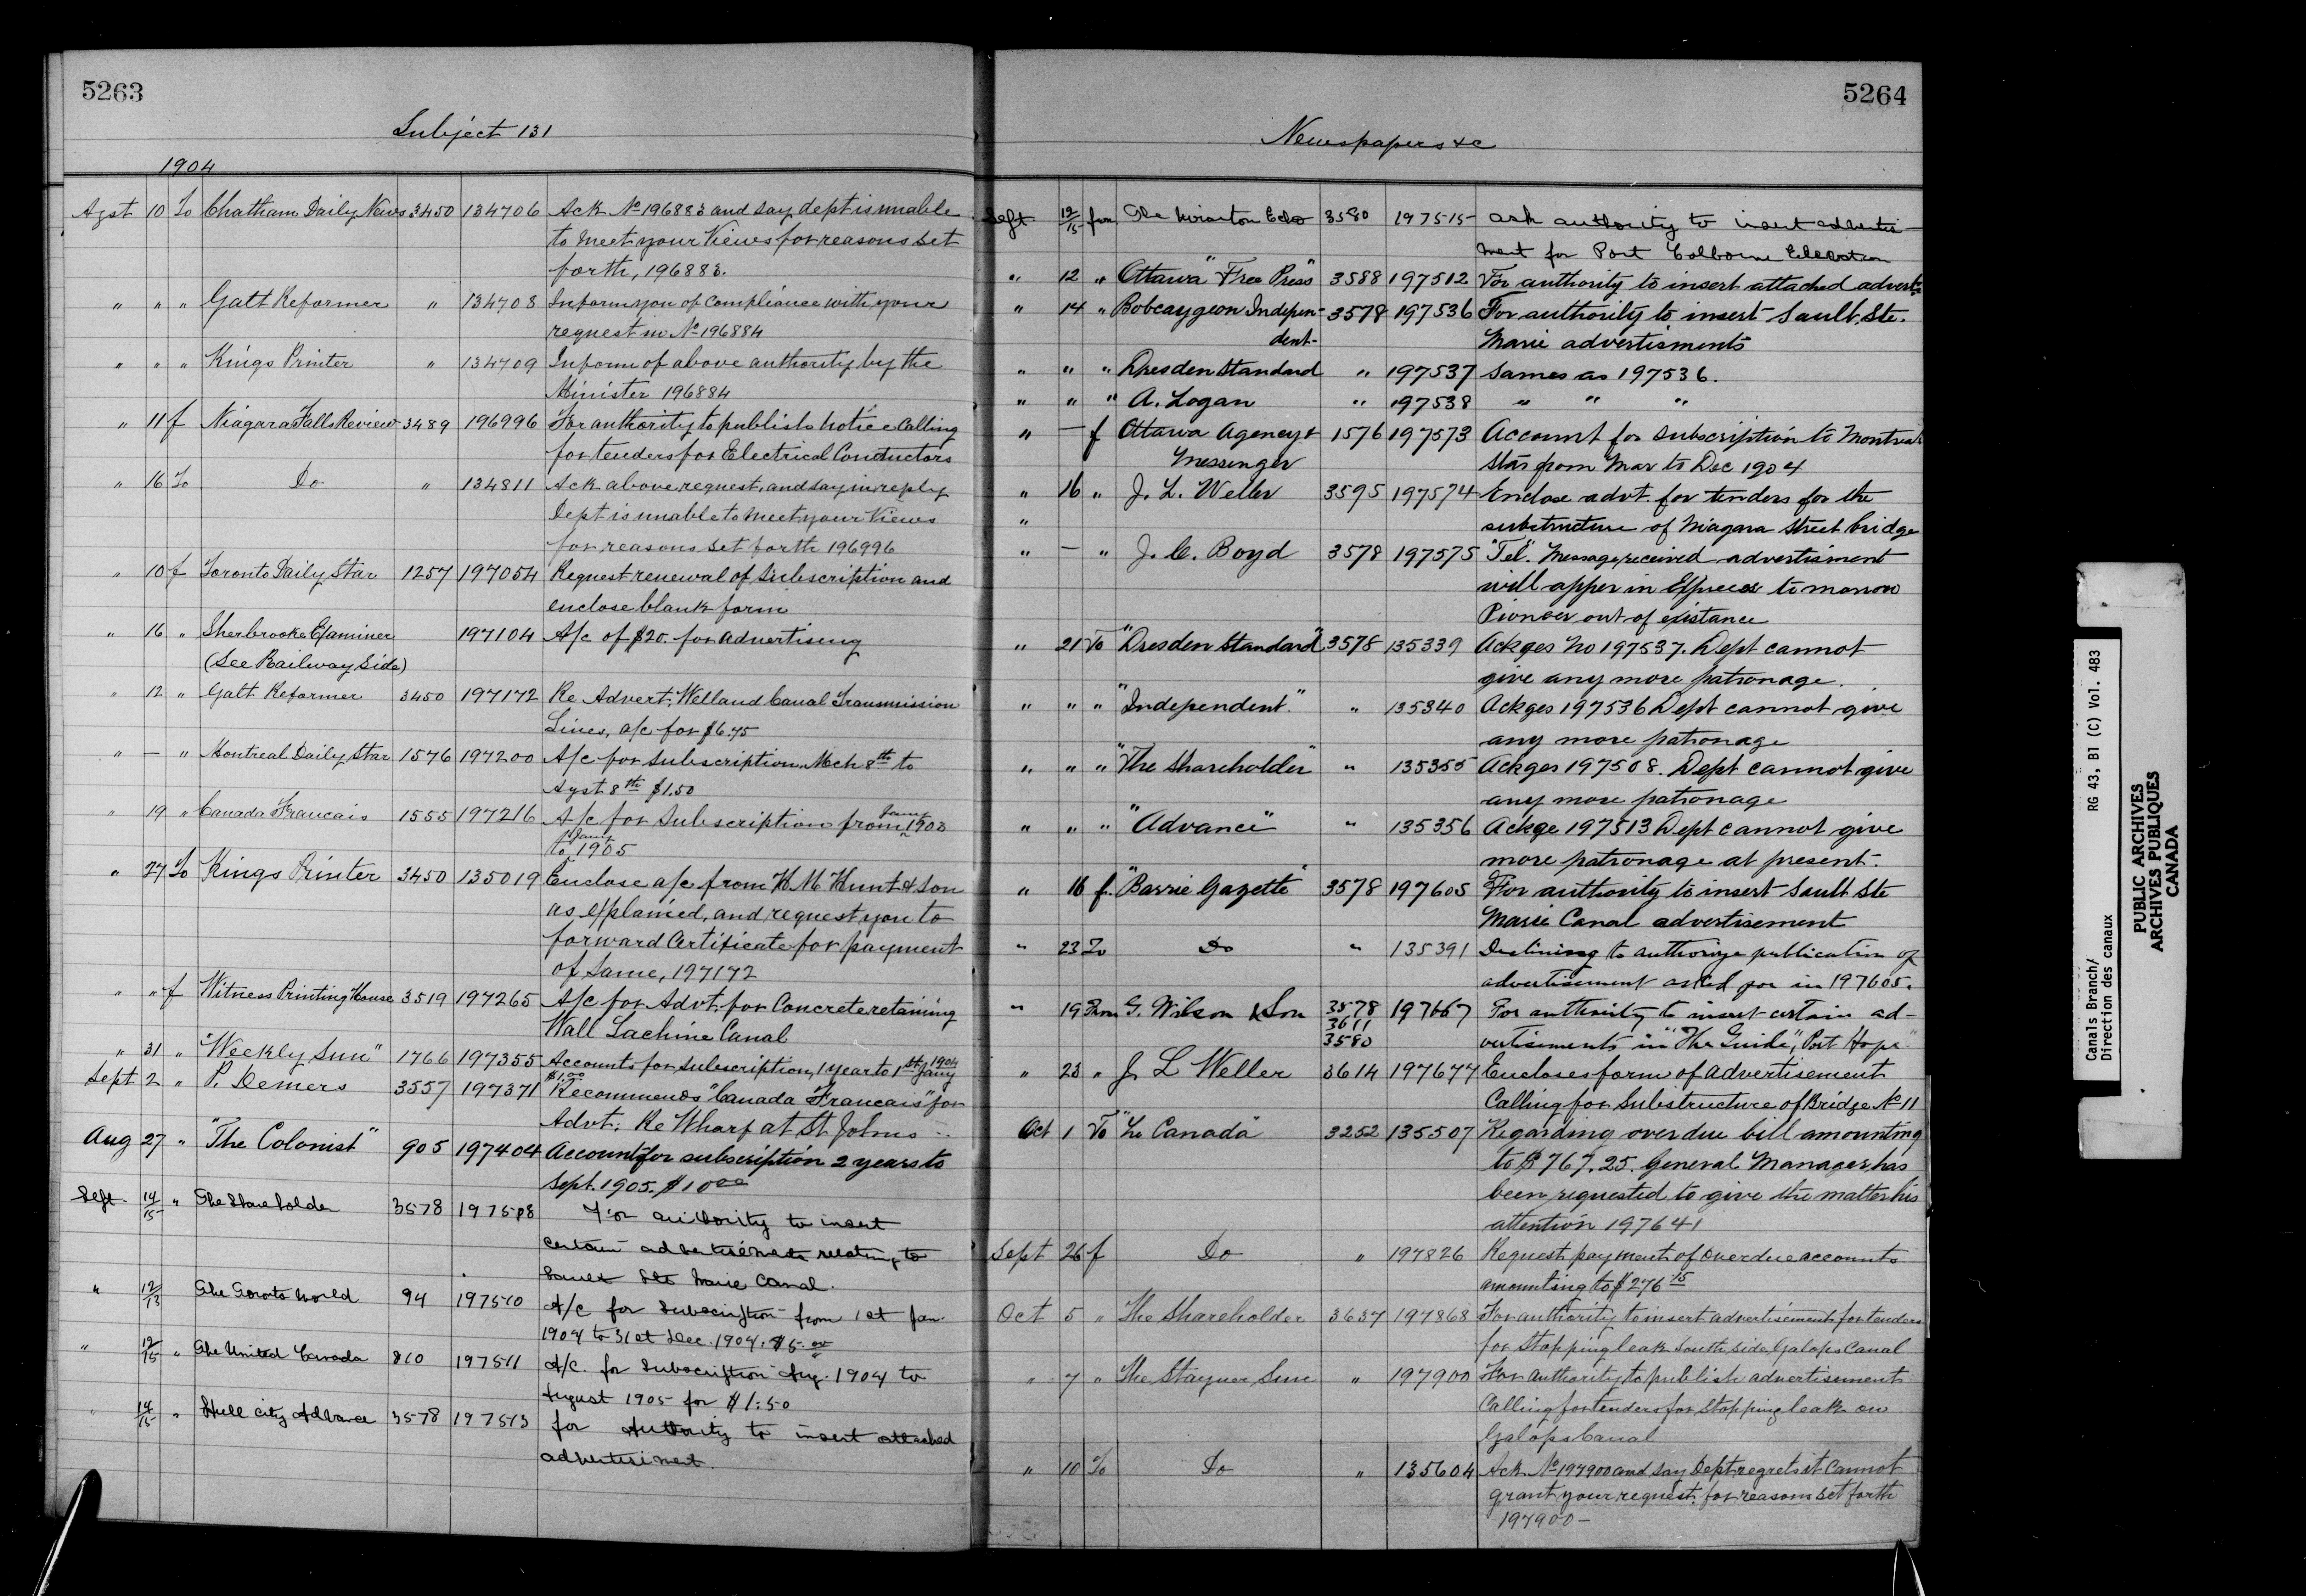 5263
Subject 131
1904
Agst 10 To Chatham Daily News 3450 134706 Ack No 196883 and say dept is unable
to meet your Views for reasons set
forth, 196883.
" " " Galt Reformer " 134708 Inform you of compliance with your
request in No 196884
" " " Kings Printer " 134709 Inform of above authority by the
Minister 196884
" 11 f Niagara Falls Review 3489 196996 For authority to publish notice Calling
for tenders for Electrical Conductors
" 16 To Do " 134811 Ack above request, and say in reply
Dept is unable to meet your Views
for reasons set forth 196996
" 10 f Toronto Daily Star 1257 197054 Request renewal of Subscription and
enclose blank form
" 16 " Sherbrooke Examiner 197104 A/c of $20. for advertising
(See Railway Side)
" 12 " Galt Reformer 3450 197172 Re Advert. Welland Canal Transmission
Lines, a/c for $6.75
" — " Montreal Daily Star 1576 197200 A/c for Subscription Mch 8th to
Agst 8th $1.50
" 19 " Canada Francais 1555 197216 A/c for Subscription from Jany 1903
to Jany 1905
" 27 To Kings Printer 3450 135019 Enclose a/c from H M Hunt & Son
as explained, and request you to
forward Certificate for payment
of Same, 197172
" " f Witness Printing House 3519 197265 A/c for Advt. for Concrete retaining
Wall Lachine Canal
" 31 " "Weekly Sun" 1766 197355 Accounts for subscription, 1 year to 1st Jany 1904
$1.00
Sept 2 " P. Demers 3557 197371 Recommends "Canada Francais" for
Advt: Re Wharf at St Johns
Aug 27 " "The Colonist" 905 197404 Account for subscription 2 years to
Sept. 1905. $10 00
Sept 14/15 " The Shareholder 3578 197508 For authority to insert
certain advertisements relating to
Sault Ste Marie Canal.
" 12/13 The Toronto World 94 197510 A/c for Subscription from 1st Jan.
1904 to 31st Dec. 1904. $5.00
" 12/15 " The United Canada 810 197511 A/c. for Subscription Aug. 1904 to
August 1905 for $1.50
" 14/15 " Hull City Advance 3578 197513 for Authority to insert attached
advertisement.
5264
Newspapers &c
Sept 12/15 from The Wiarton Echo 3580 197515 ask authority to insert advertise-
ment for Port Colborne Elevation
" 12 " Ottawa "Free Press" 3588 197512 For authority to insert attached advert
" 14 " Bobcaygeon Indepen- 3578 197536 For authority to insert Sault. Ste.
dent- Marie advertisments
" " " Dresden Standard " 197537 Sames as 197536.
" " " A. Logan " 197538 " " "
" — f Ottawa Agency & 1576 197573 Account for subscription to Montreal
Messenger Star from Mar to Dec 1904
" 16 " J. L. Weller 3595 197574 Enclose advt. for tenders for the
" substructure of Niagara Street bridge
" — " J. C. Boyd 3578 197575 "Tel". Message received advertisment
will apper in Express to morrow
Pioneer out of existance
" 21 To "Dresden Standard" 3578 135339 Ackges No 197537. Dept cannot
give any more patronage.
" " " "Independent." " 135340 Ackges 197536 Dept cannot give
any more patronage
" " " "The Shareholder" " 135355 Ackges 197508. Dept cannot give
any more patronage
" " " "Advance" " 135356 Ackge 197513 Dept cannot give
more patronage at present.
" 16 f. "Barrie Gazette" 3578 197605 For authority to insert Sault Ste
Marie Canal advertisement
" 23 To Do " 135391 Declining to authorize publication of
advertisement asked for in 197605.
" 19 From G. Wilson & Son 3578 197667 For authority to insert certain ad-
3611
3580 vertisements in "The Guide", Port Hope
" 23 " J. L Weller 3614 197677 Encloses form of advertisement
Calling for Substructure of Bridge No 11
Oct 1 To "La Canada" 3252 135507 Regarding overdue bill amounting
to $767.25. General Manager has
been requested to give the matter his
attention 197641
Sept 26 f Do " 197826 Request payment of overdue accounts
amounting to $276.15
Oct 5 " The Shareholder 3637 197868 For authority to insert advertisement for tenders
for Stopping leak South side Galops Canal
" 7 " The Stayner Sun " 197900 For authority to publish advertisement
Calling for tenders for Stopping leak on
Galops Canal
" 10 To Do " 135604 Ack No 197900 and say Dept regrets it Cannot
grant your request, for reasons set forth
197900 —
Canals Branch/ RG 43, B1 (C) Vol. 483
Direction des canaux
PUBLIC ARCHIVES
ARCHIVES PUBLIQUES
CANADA